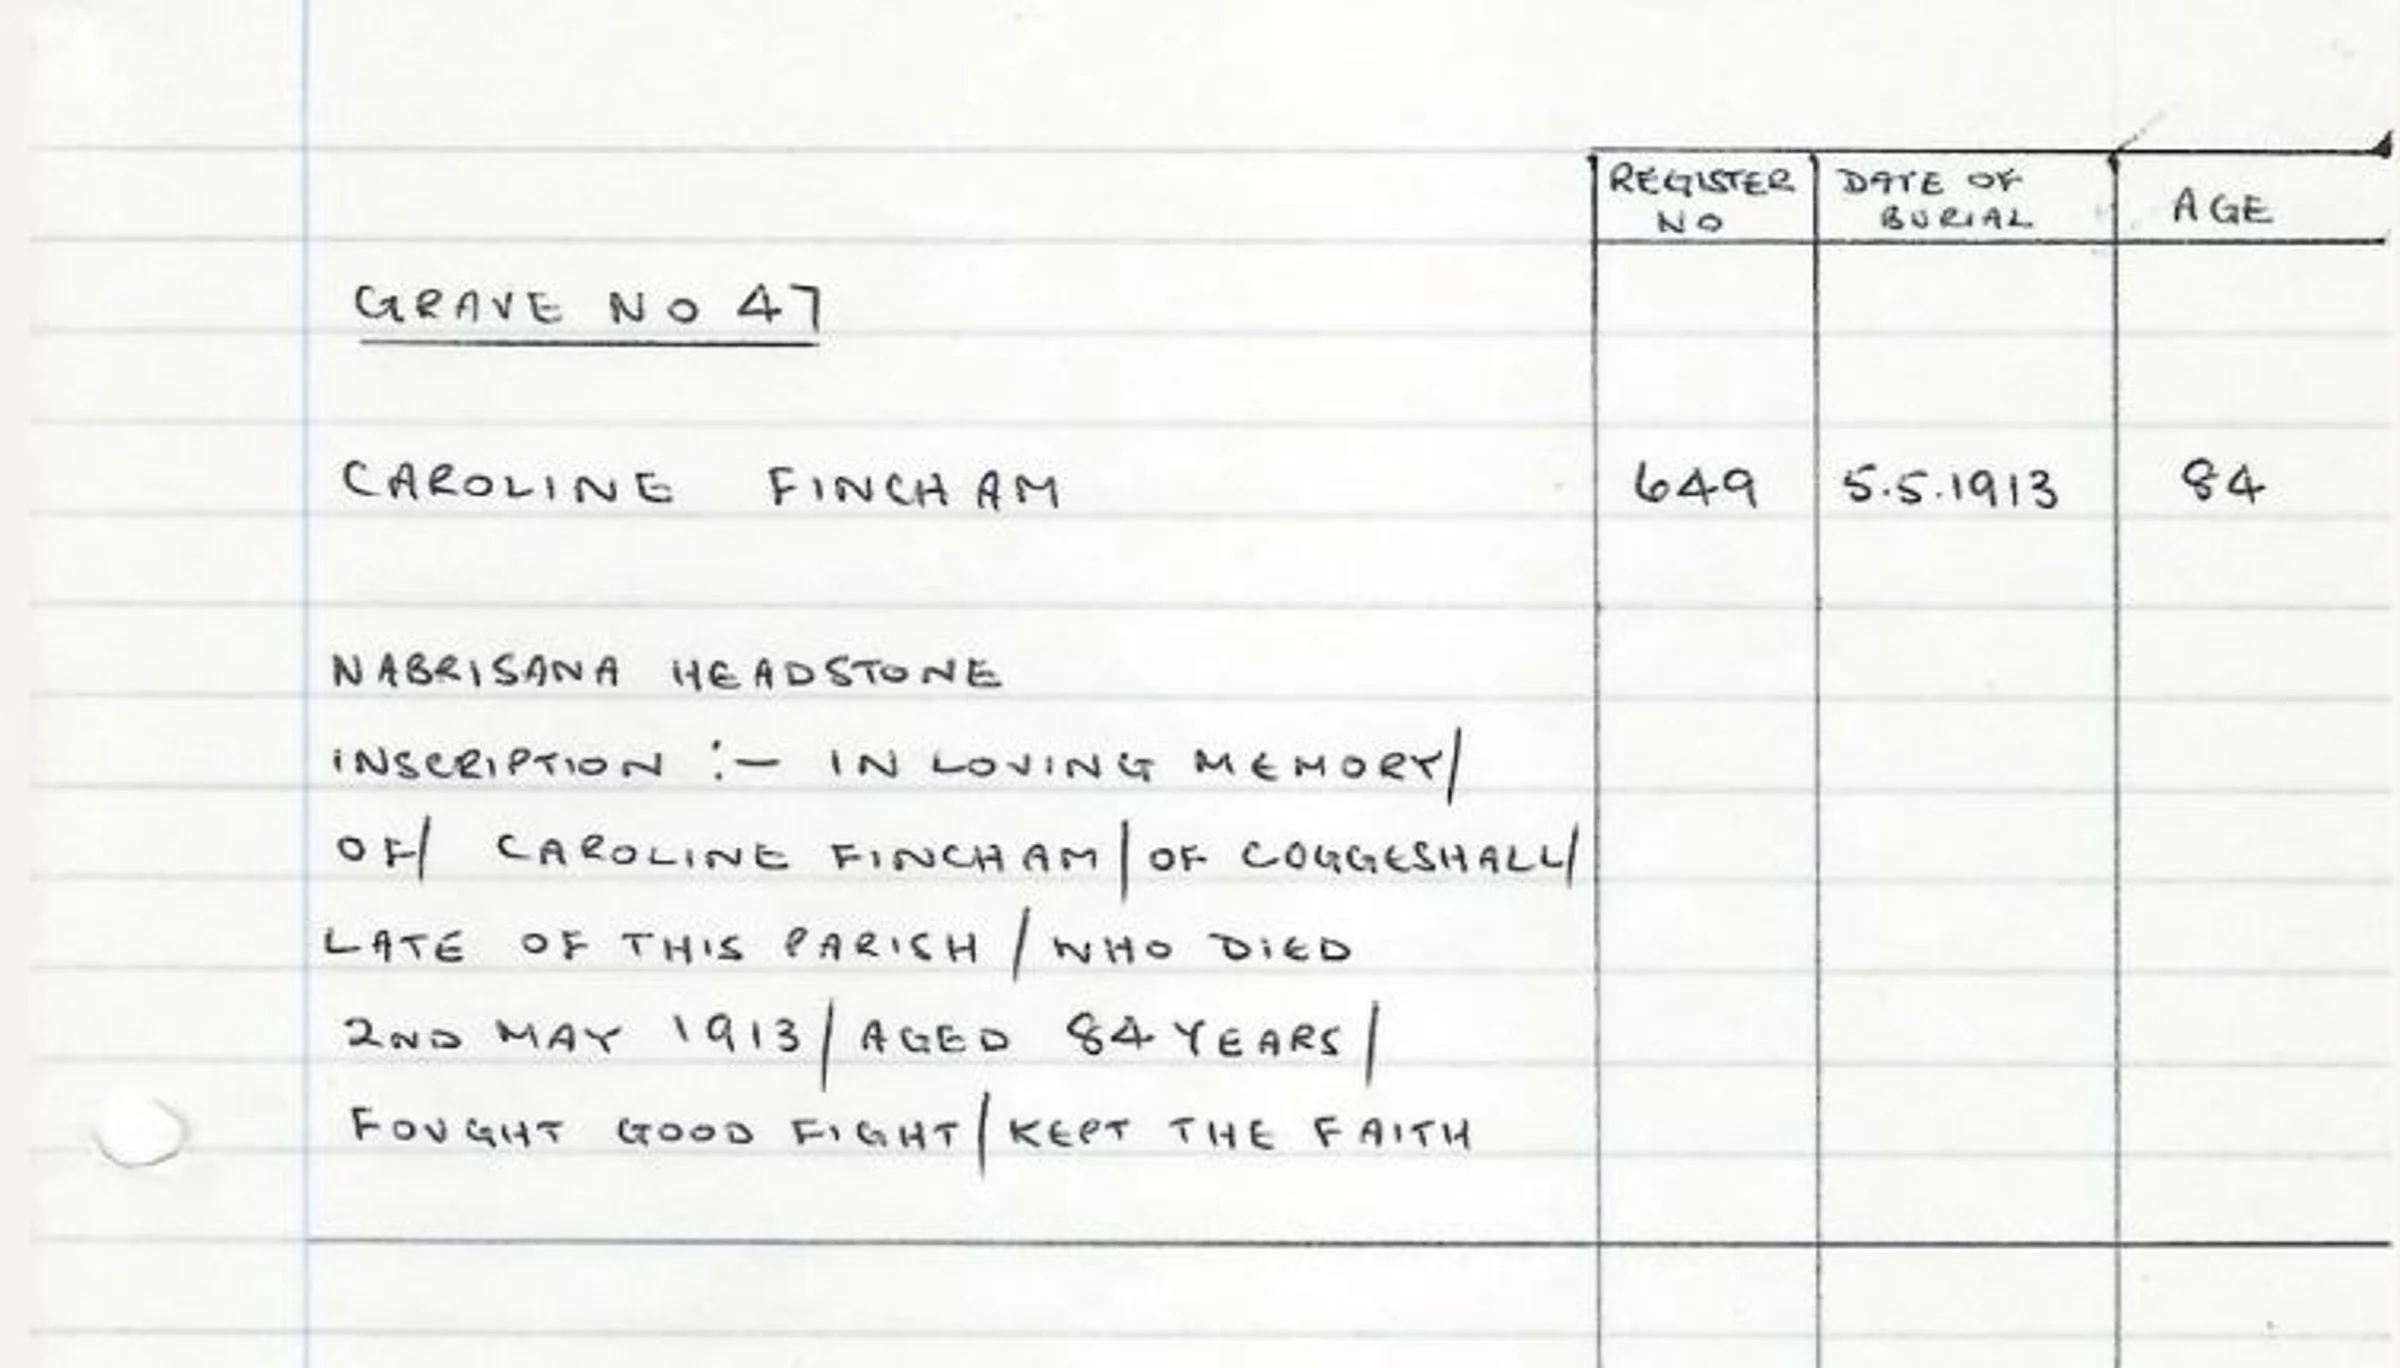 REGISTER NO DATE OF BURIAL AGE
GRAVE No 47
CAROLINE FINCHAM 649 5.5.1913 84
NABRISANA HEADSTONE
INSCRIPTION :- IN LOVING MEMORY/
OF/ CAROLINE FINCHAM/OF COGGESHALL/
LATE OF THIS PARISH/WHO DIED
2ND MAY 1913/AGED 84 YEARS/
FOUGHT GOOD FIGHT/KEPT THE FAITH